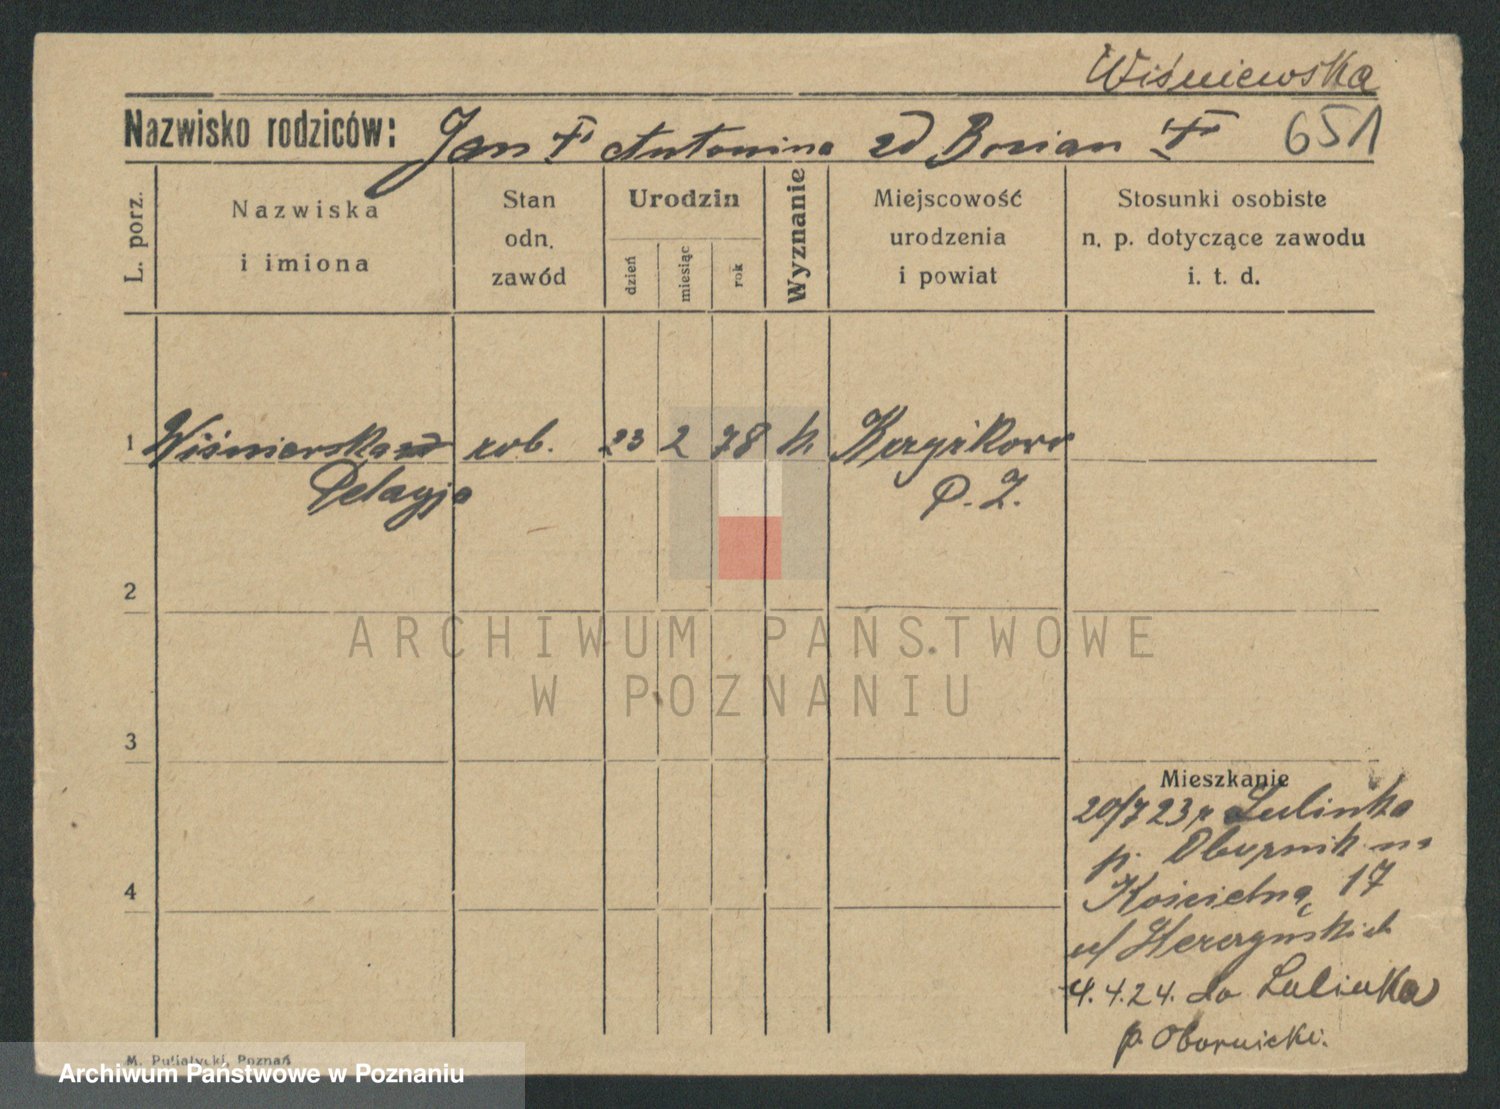 Wiśniewska
Nazwisko rodziców: Jan † Antonina zd Bosian † 651
L. porz.
Nazwiska
i imiona
Stan
odn.
zawód
Urodzin
dzień
miesiąc
rok
Wyznanie
Miejscowość
urodzenia
i powiat
Stosunki osobiste
n. p. dotyczące zawodu
i. t. d.
1 Wiśniewska rob. 23 2 78 k.
Pelagja
2
ARCHIWUM PAŃSTWOWE
W POZNANIU
3
Mieszkanie
20/7 23 z Lulinka
p. Obornik na
4 Kościelną 17
4.4.24. do Lulinka
p. Obornicki.
M. Putiatycki, Poznań
Archiwum Państwowe w Poznaniu